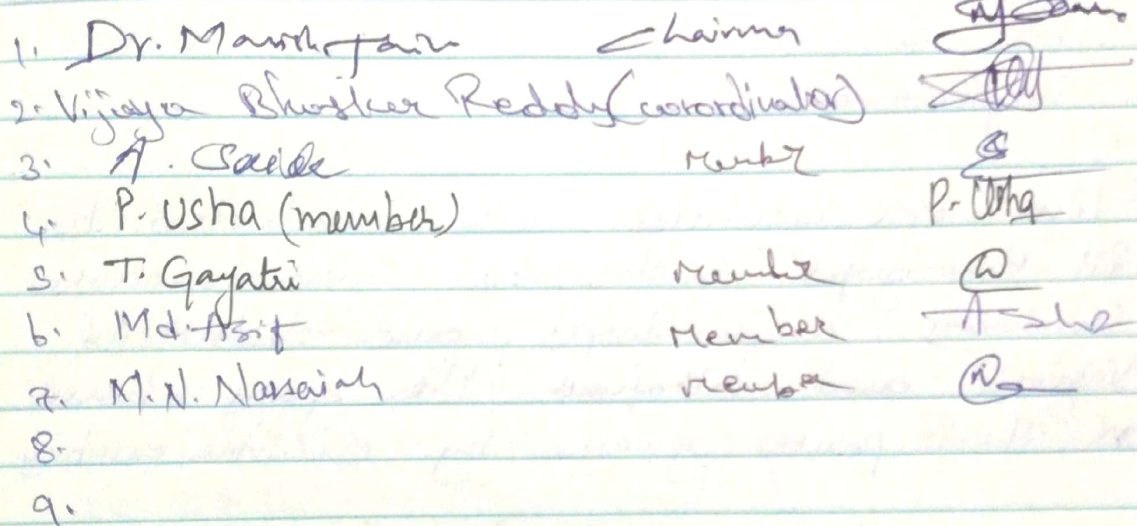 1. Dr. Manish Jain Chairman
2. Vijaya Bhasker Reddy (coordinator)
3. A. Saida Member
4. P. Usha (member) P. Usha
5. T. Gayatri Member
6. Md. Asif Member
7. M. N. Narsaiah Member
8.
9.